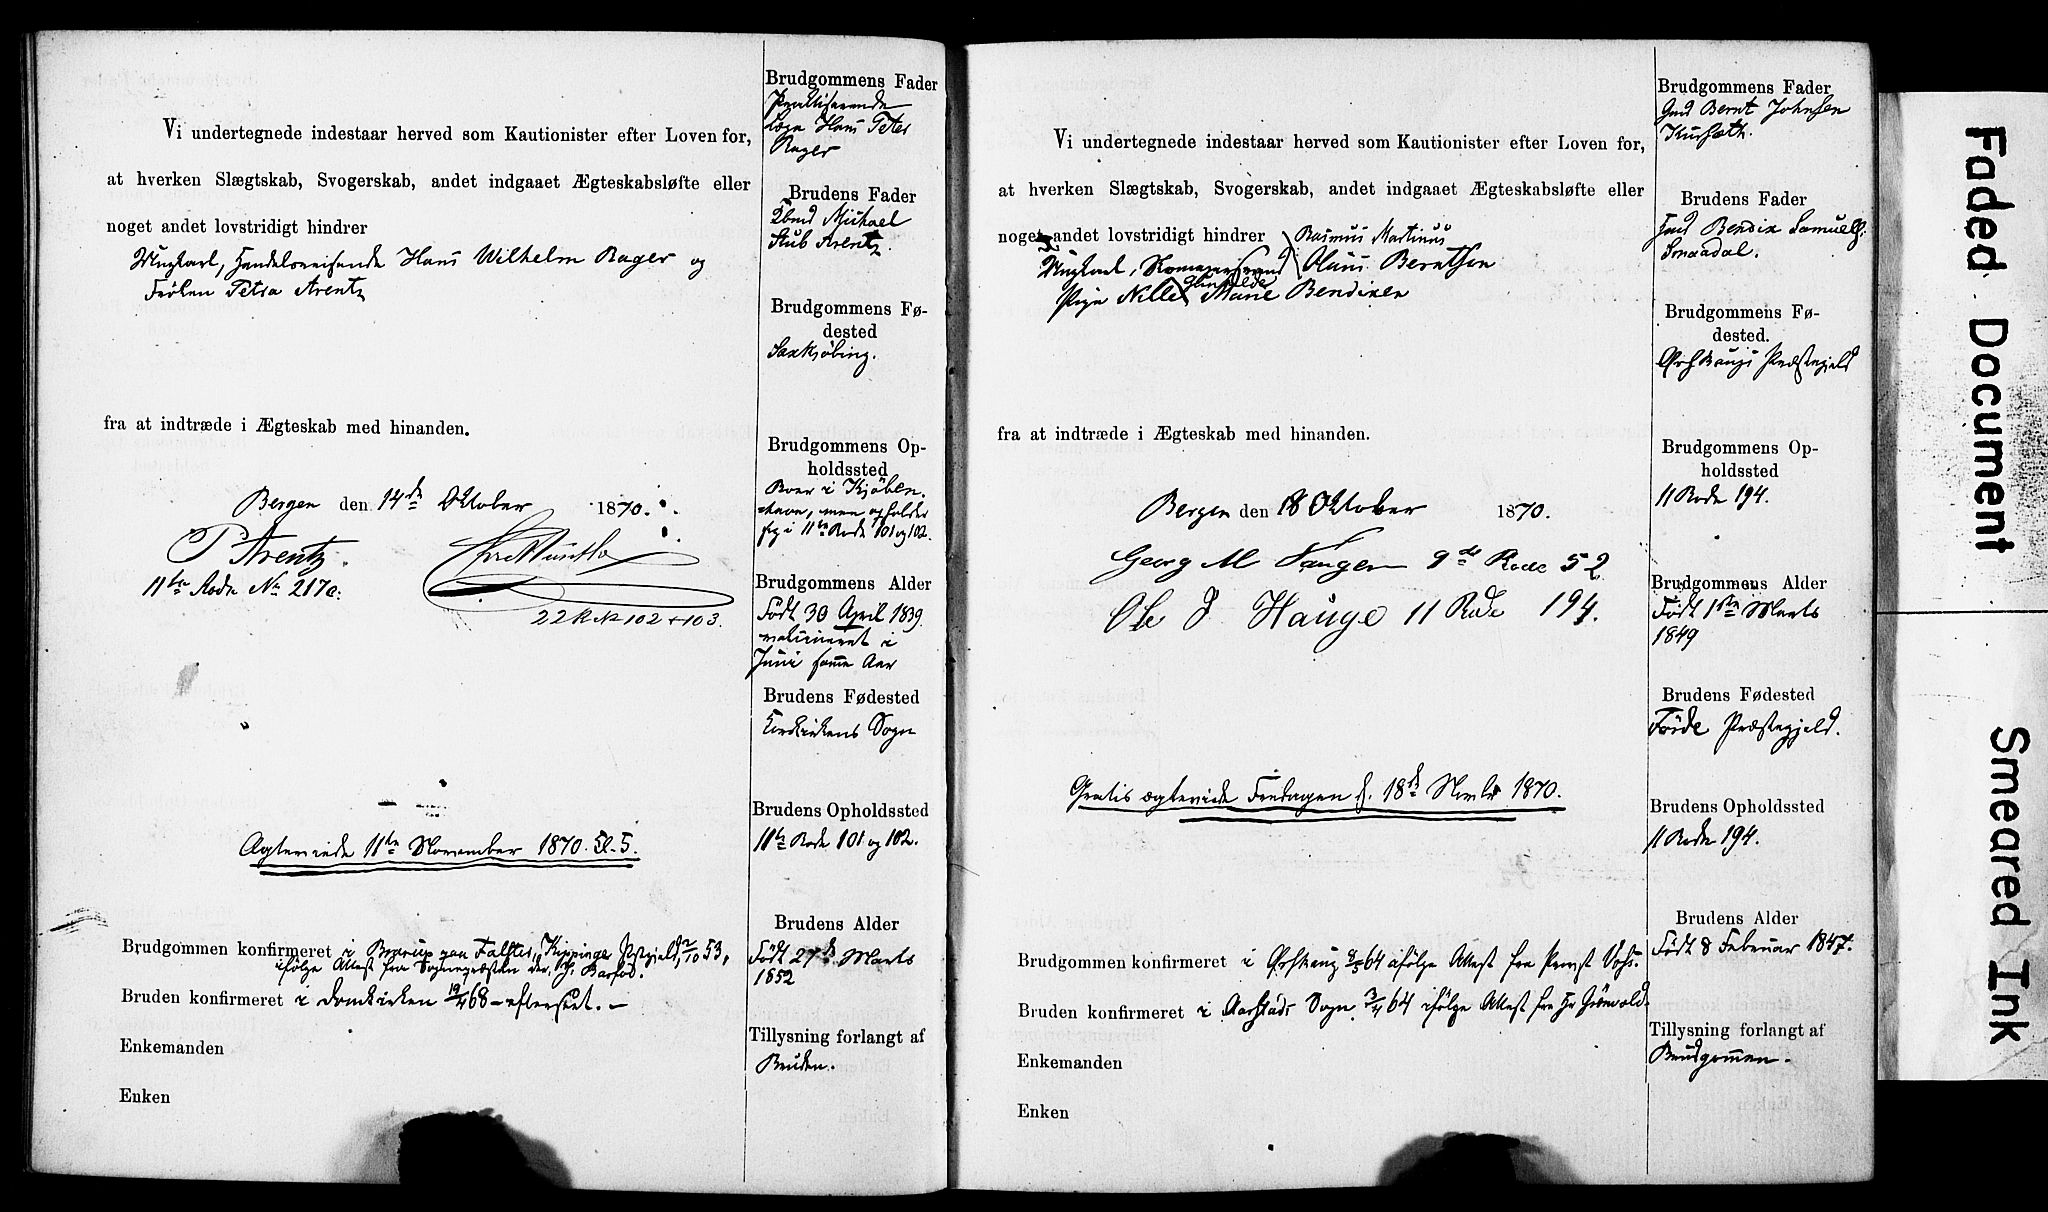 Vi undertegnede indestaar herved som Kautionister efter Loven for,
at hverken Slægtskab, Svogerskab, andet indgaaet Ægteskabsløfte eller
noget andet lovstridigt hindrer
Ungkarl, Handelsreisende Hans Wilhelm Rager og
Frøken Petra Arentz
fra at indtræde i Ægteskab med hinanden.
Bergen den 14de Oktober 1870.
P Arentz
11te Rode No 217a.
22 R No 102 + 103.
Ægteviede 11te November 1870. Kl. 5.
Brudgommen konfirmeret i Brarup paa Falster, Kippinge Præstegjeld, 2/10 53,
ifølge Attest fra Sognepræsten der, Hr. Barfod.
Bruden konfirmeret i Domkirken 19/4 68 – efterseet. –
Enkemanden
Enken
Brudgommens Fader
Praktiserende
Læge Hans Peter
Rager
Brudens Fader
Michael
Stub Arentz.
Brudgommens Fø-
dested
Saxkjöbing.
Brudgommens Op-
holdssted
Boer i Kjöben-
havn, men opholder
sig i 11te Rode 101 og 102.
Brudgommens Alder
Født 30 April 1839.
vaccineret i
Juni samme Aar
Brudens Fødested
Korskirkens Sogn
Brudens Opholdssted
11te Rode 101 og 102.
Brudens Alder
Født 27de Marts
1852
Tillysning forlangt af
Bruden.
Vi undertegnede indestaar herved som Kautionister efter Loven for,
at hverken Slægtskab, Svogerskab, andet indgaaet Ægteskabsløfte eller
noget andet lovstridigt hindrer Rasmus Martinus
Ungkarl, Olaus Berntsen
Pige Nille Marie Bendixen
fra at indtræde i Ægteskab med hinanden.
Bergen den 18 Oktober 1870.
Georg M 9de Rode 52
Ole J Hauge 11 Rode 194.
Gratis ægteviede Fredagen d. 18de Novbr 1870.
Brudgommen konfirmeret i Ørskoug 8/5 64 ifølge Attest fra Provst
Bruden konfirmeret i Sogn 3/4 64 ifølge Attest fra Hr Grönvold.
Enkemanden
Enken
Brudgommens Fader
Gmd Bernt Johnsen
Brudens Fader
Gmd Bendix Samuels.
Smaadal.
Brudgommens Fø-
dested.
Ørskougs Præstegjeld
Brudgommens Op-
holdssted
11 Rode 194.
Brudgommens Alder
Født 1ste Marts
1849
Brudens Fødested
Förde Præstegjeld.
Brudens Opholdssted
11 Rode 194.
Brudens Alder
Født 8 Februar 1847.
Tillysning forlangt af
Brudgommen.
Faded Document
Smeared Ink